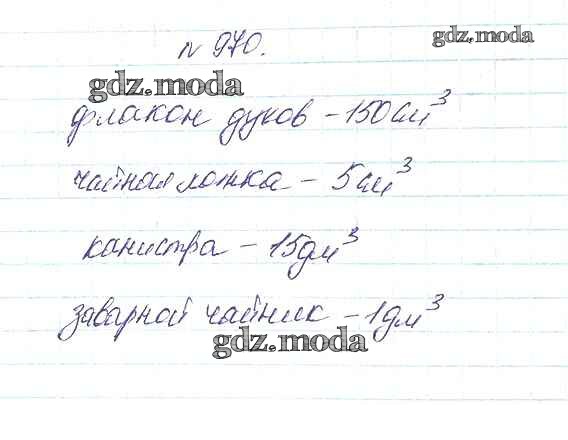 № 970.
gdz.moda
gdz.moda
флакон духов - 150 см³
чайная ложка - 5 см³
канистра - 15 дм³
заварной чайник - 1 дм³
gdz.moda